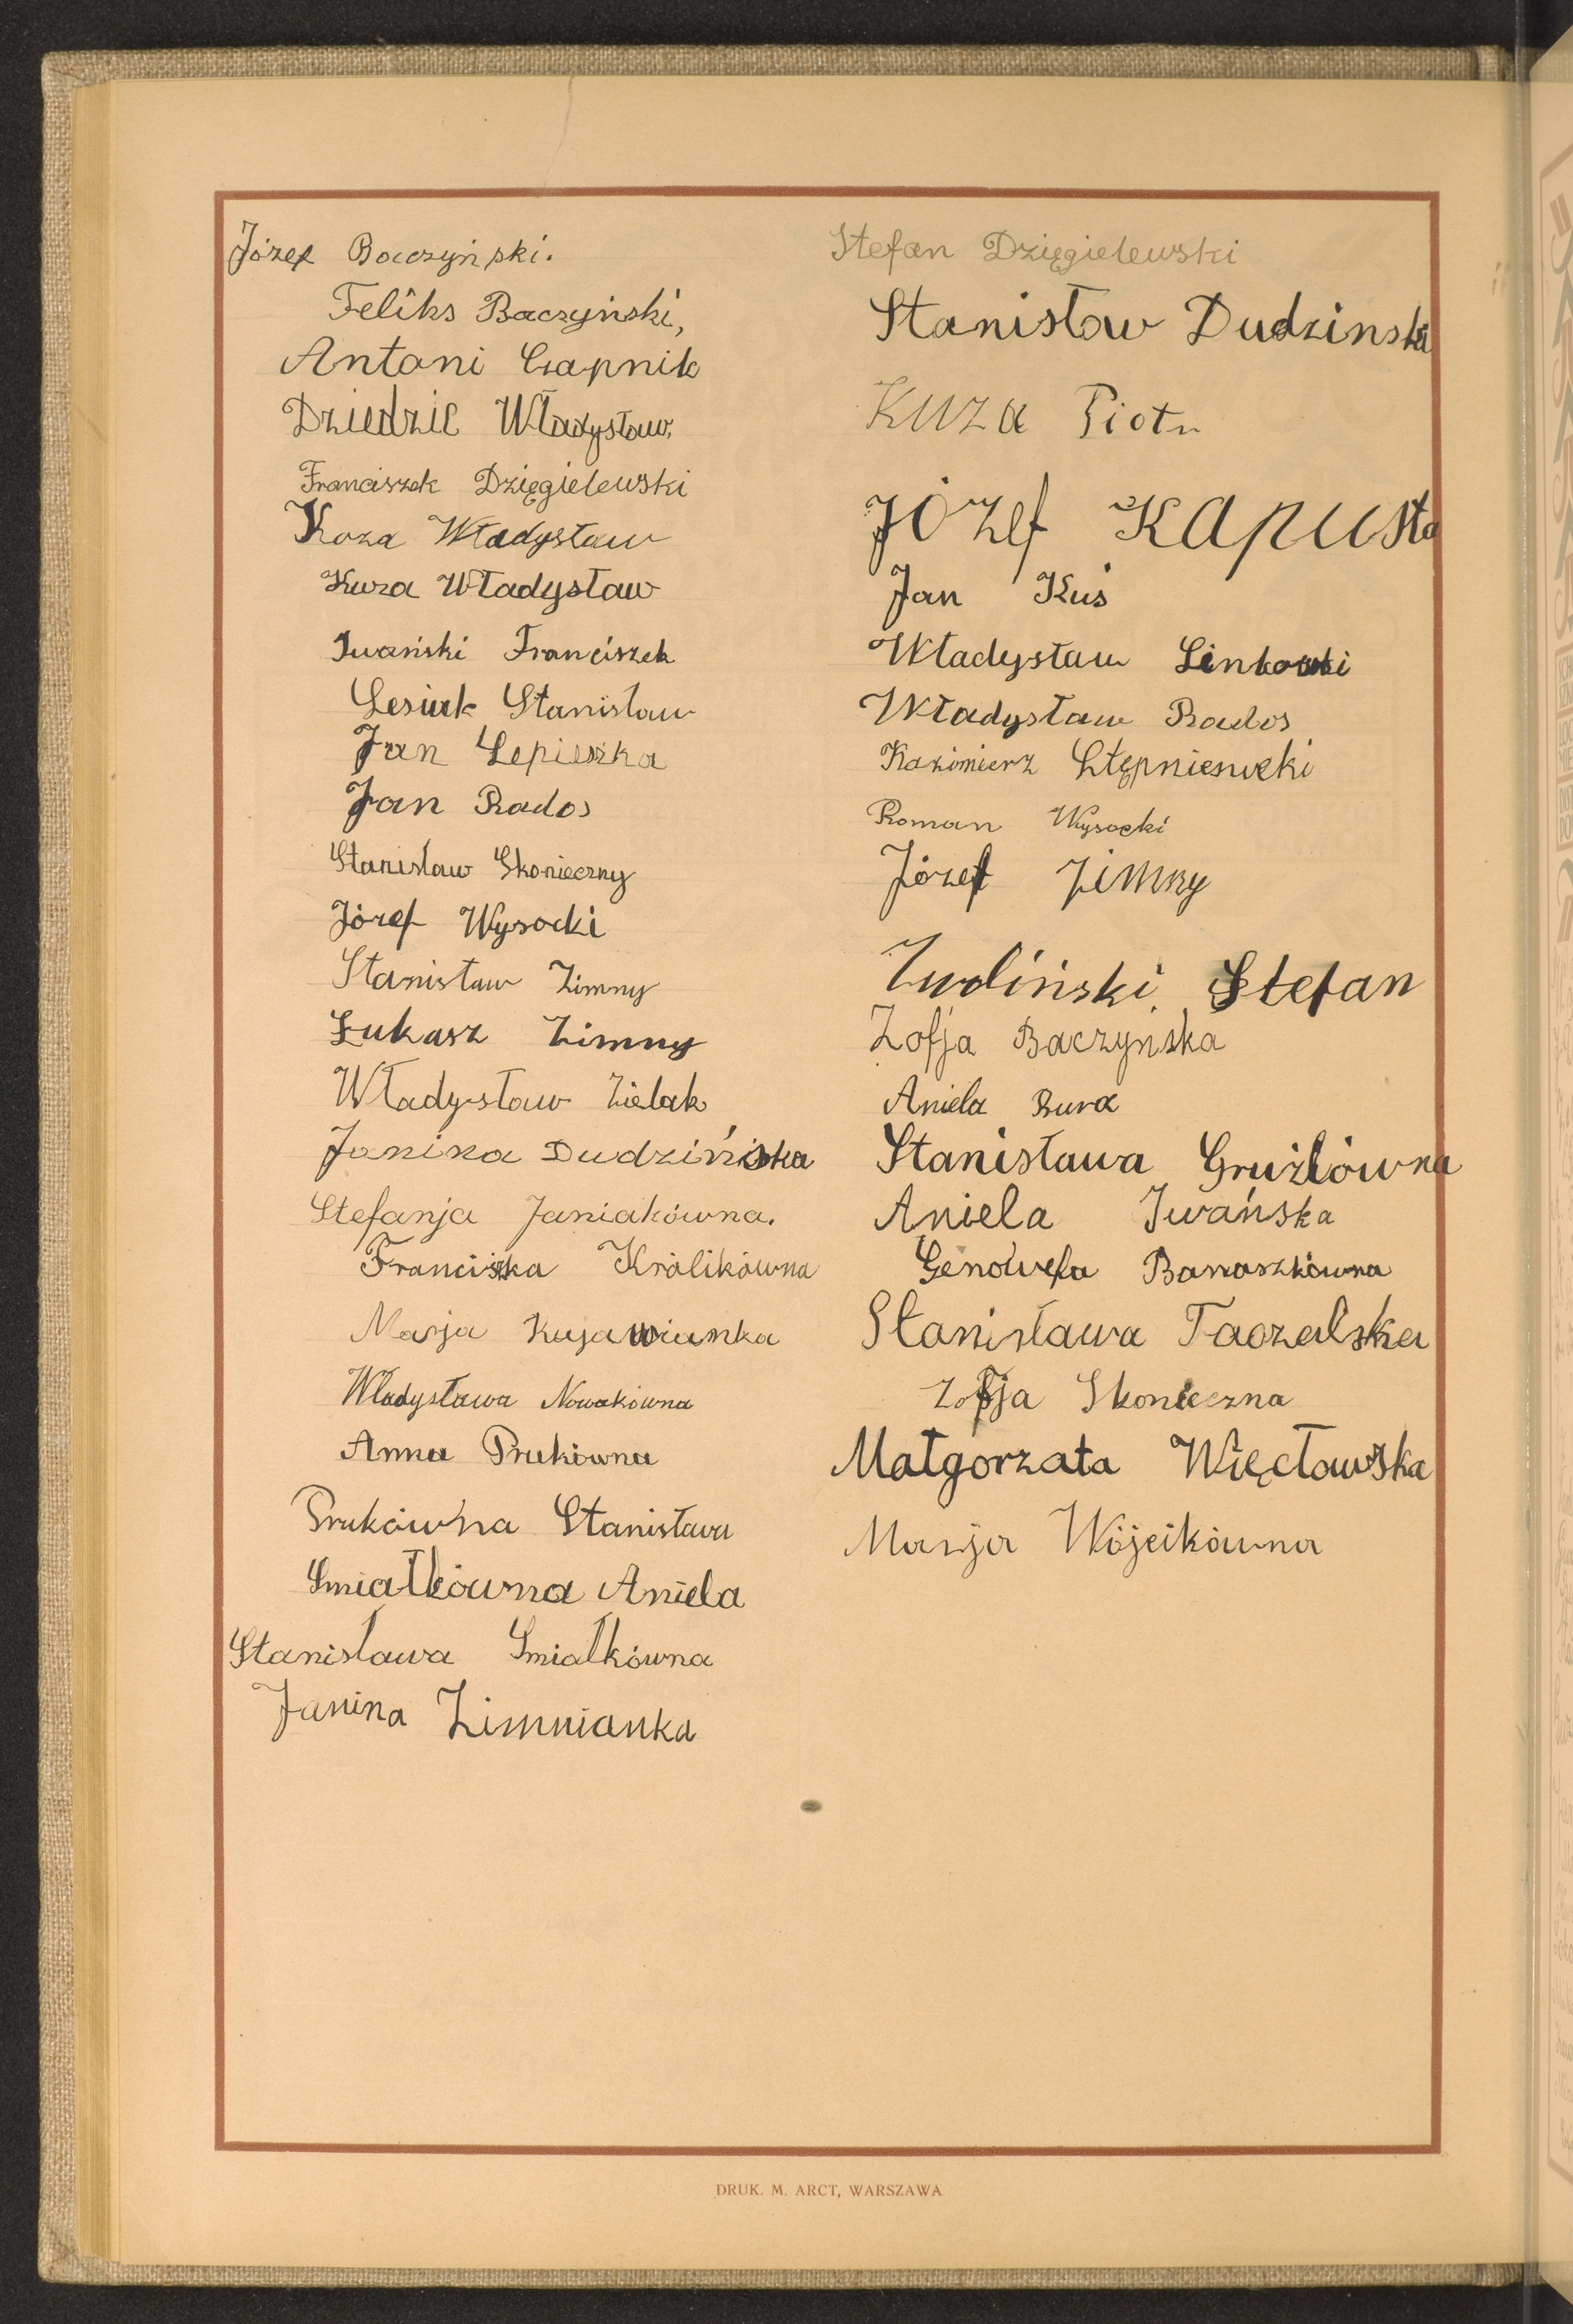 Józef Baczyński.
Feliks Baczyński,
Antoni Czapnik
Dziedzic Władysław.
Franciszek Dzięgielewski
Koza Władysław
Kuza Władysław
Iwański Franciszek
Lesiuk Stanisław
Jan Lepieszka
Jan Rados
Stanisław Skonieczny
Józef Wysocki
Stanisław Zimny
Łukasz Zimny
Władysław Zielak
Janina Dudzińska
Stefanja Janiakówna.
Franciszka Królikówna
Marja Kujawianka
Władysława Nowakówna
Anna Prukówna
Prukówna Stanisława
Smiałkówna Aniela
Stanisława Smiałkówna
Janina Zimnianka
Stefan Dzięgielewski
Stanisław Dudzinski
Kuza Piotr
Józef Kapusta
Jan Kuś
Władysław Linkowski
Władysław Rados
Kazimierz Stępniewski
Roman Wysocki
Józef Zimny
Zwoliński Stefan
Zofja Baczyńska
Aniela Bura
Stanisława Gruźlówna
Aniela Iwańska
Genowefa Banaszkówna
Stanisława Taczalska
Zofja Skonieczna
Małgorzata Więcławska
Marja Wójcikówna
DRUK. M. ARCT, WARSZAWA